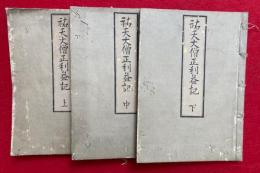 祐天大僧正利益記 下
祐天大僧正利益記 中
祐天大僧正利益記 上